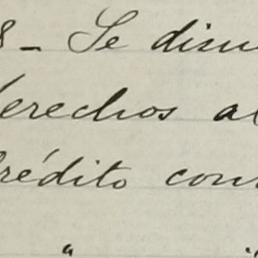 8_ Se discu
derechos al
crédito con
" "